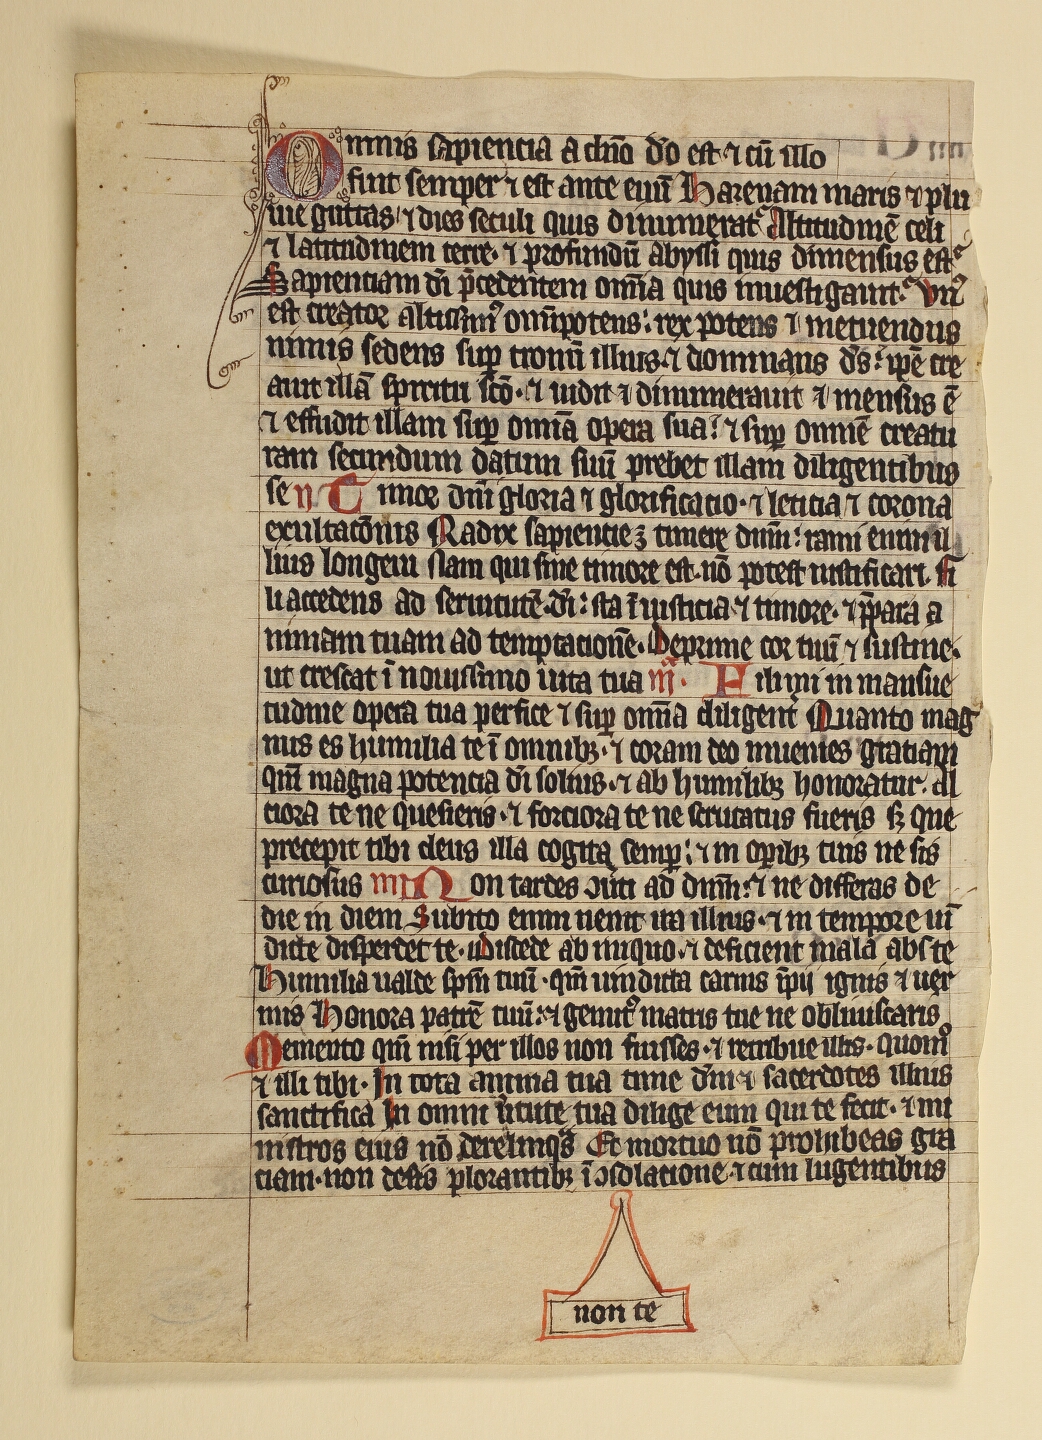 Omnis sapiencia a dño dõ est ⁊ cũ illo
fuit semper ⁊ est ante euũ Harenam maris ⁊ plu
uie guttas ⁊ dies seculi quis dinumerat᷒ Altitudinẽ celi
⁊ latitudinem terre · ⁊ profundũ abyssi quis dimensus est
Sapienciam dı̃ p̃cedentem om̃ia quis inuestigauit · Vnꝰ
est creator altissimꝰ om̃ipotens : rex potens ⁊ metuendus
nimis sedens suꝑ tronũ illius · ⁊ dominans dẽs : ip̃e cre
auit illã spiritu sc̃o · ⁊ uidit ⁊ dinumerauit ⁊ mensus ẽ
⁊ effudit illam suꝑ om̃ia opera sua : ⁊ suꝑ omnẽ creatu
ram secundum datum suũ prebet illam diligentibus
se ij Timor dñi gloria ⁊ glorificacio · ⁊ leticia ⁊ corona
exultacõnis Radix sapiencie ꝫ timere dñm : rami enim il
lius longeui Nam qui sine timore est · nõ potest iustificari · fi
li accedens ad seruitutẽ · dı̃ : sta ı̃ iusticia ⁊ timore · ⁊ p̃para a
nimam tuam ad temptacionẽ · Deprime cor tuũ ⁊ sustine ·
ut crescat ı̃ nouissimo uita tua iij · Fili mi in mansue
tudine opera tua perfice ⁊ suꝑ om̃ia diligerı̃ Quanto mag
nus es humilia te ı̃ omnibꝫ · ⁊ coram deo inuenies graciam
qm̃ magna potencia dı̃ solius · ⁊ ab humilibꝫ honoratur · al
ciora te ne quesieris · ⁊ forciora te ne scrutatus fueris sꝫ que
precepit tibi deus illa cogita semꝑ : ⁊ in oꝑibꝫ tuis ne sis
curiosus iiij Non tardes ↄuti ad dñm : ⁊ ne differas de
die in diem Subito enim uenit ira illius · ⁊ in tempore uı̃
dicte disperdet te · v discede ab iniquo · ⁊ deficient mala abs te
Humilia ualde sp̃m tuũ · qm̃ uindicta carnis ı̃pij ignis ⁊ uer
mis Honora patrẽ tuũ : ⁊ gemitꝰ matris tue ne obliuiscaris
Memento qm̃ nisi per illos non fuisses · ⁊ retribue illis · quomõ
⁊ illi tibi · In tota anima tua time dñm ⁊ sacerdotes illius
sanctifica In omni ũtute tua dilige eum qui te fecit · ⁊ mi
nistros eius nõ derelinqͣs Et mortuo nõ prohibeas gra
ciam · non desis plorantibꝫ ı̃ ↄsolacione · ⁊ cum lugentibus
non te